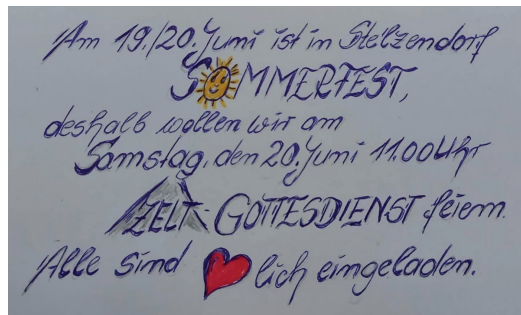 Am 19./20. Juni ist in Stelzendorf
SOMMERFEST,
deshalb wollen wir am
Samstag, den 20. Juni 11.00 Uhr
ZELT-GOTTESDIENST feiern.
Alle sind ❤lich eingeladen.